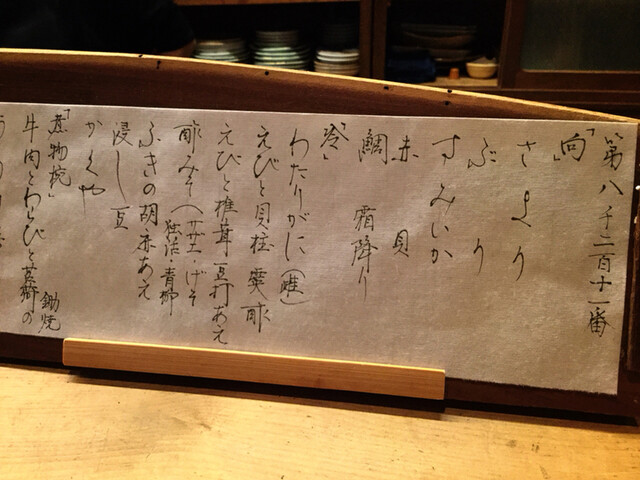 第八千二百十一番
「向」
さより
ぶり
すみいか
赤貝
鯛 霜降り
「冷」
わたりがに(雌)
えびと貝柱 黄酢
えびと椎茸 豆打あえ
酢みそ(サザエ・げそ
独活・青柳
ふきの胡麻あえ
浸し豆
かくや
「煮物椀」
牛肉とわらびと
鋤焼